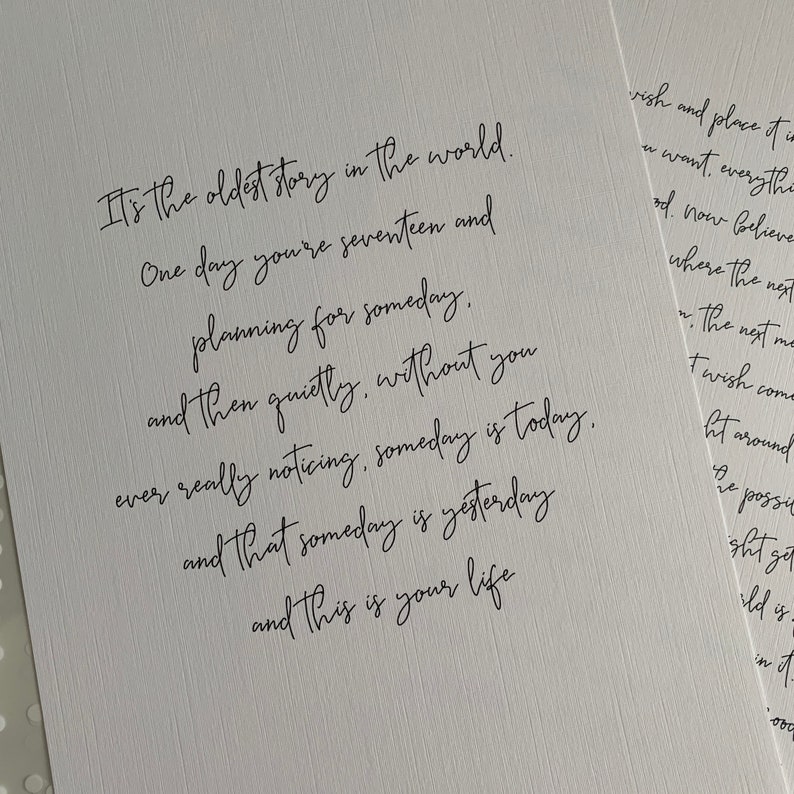 It's the oldest story in the world.
One day you're seventeen and
planning for someday,
and then quietly, without you
ever really noticing, someday is today,
and that someday is yesterday
and this is your life
wish and place it in
want, everythi
now believe
where the next
the next m
wish com
around
possi
get
is
in it.